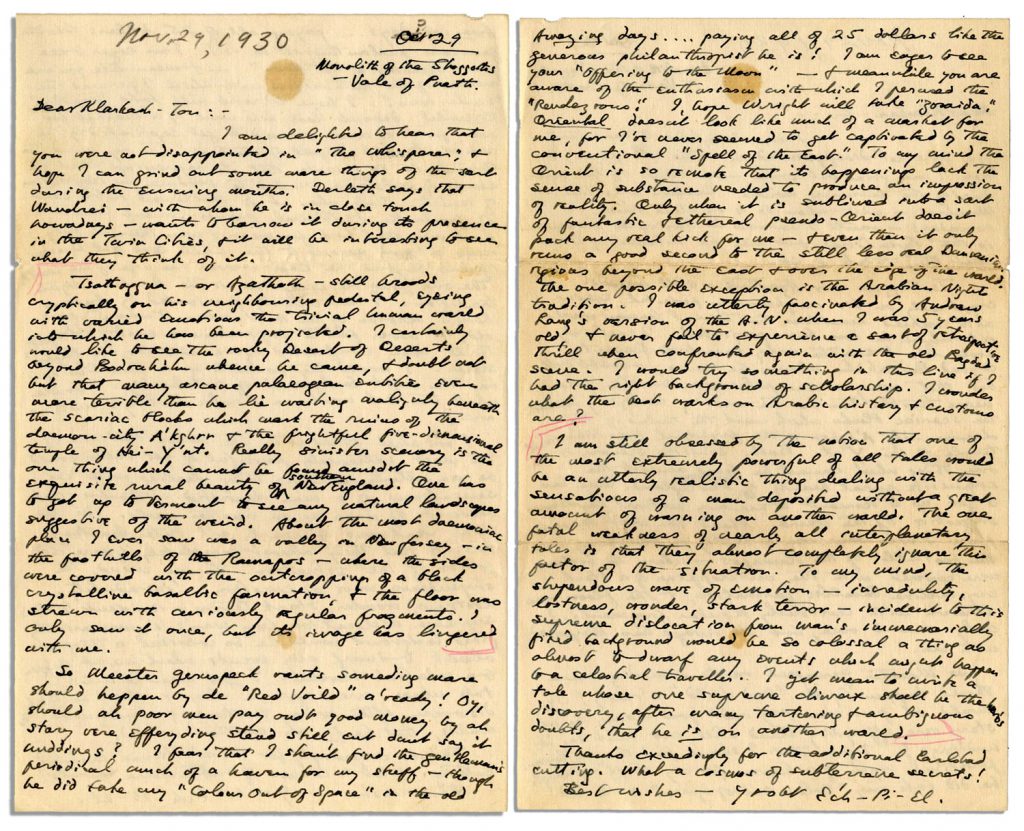 Nov. 29, 1930
Oct 29
Monolith of the Shoggoths
— Vale of Pnath.
Dear Klarkash-Ton:-
I am delighted to hear that
you were not disappointed in "The Whisperer", &
hope I can grind out some more things of the sort
during the ensuing months. Derleth says that
Wandrei — with whom he is in close touch
nowadays — wants to borrow it during its presence
in the Twin Cities, & it will be interesting to see
what they think of it.
Tsathoggua — or Azathoth — still broods
cryptically on his neighbouring pedestal, eyeing
with varied emotions the trivial human world
into which he has been projected. I certainly
would like to see the rocky Desert of Deserts
beyond whence he came, & doubt not
but that many arcane palaeogean entities even
more terrible than he lie waiting malignly beneath
the scoriac blocks which mark the ruins of the
daemon-city & the frightful five-dimensional
temple of Really sinister scenery is the
one thing which cannot be found amidst the
exquisite rural beauty of southern New England. One has
to get up to Vermont to see any natural landscapes
suggestive of the weird. About the most daemoniac
place I ever saw was a valley in New Jersey — in
the foothills of the Ramapos — where the sides
were covered with the outcropping of a black
crystalline basaltic formation, & the floor was
strewn with curiously regular fragments. I
only saw it once, but its image has lingered
with me.
So Meester gernspack vants someding more
should heppen by de "Red Voild" a'ready! Oy,
should ah poor men pay oudt good money by ah
story vere efferyding stend still end don't say it
nuddings? I fear that I shan't find the gentleman's
periodical much of a haven for my stuff — though
he did take my "Colour Out of Space" in the old
Amazing days.... paying all of 25 dollars like the
generous philanthropist he is! I am eager to see
your "Offering to the Moon" — & meanwhile you are
aware of the enthusiasm with which I perused the
"Rendezvous". I hope Wright will take "Zoraida".
Oriental doesn't look like much of a market for
me, for I've never seemed to get captivated by the
conventional "Spell of the East". To my mind the
Orient is so remote that its happenings lack the
sense of substance needed to produce an impression
of reality. Only when it is sublimed into a sort
of fantastic & ethereal pseudo-Orient does it
pack any real kick for me — & even then it only
runs a good second to the still less real Dunsanian
regions beyond the East & over the edge of the world.
The one possible exception is the Arabian Night
tradition. I was utterly fascinated by Andrew
Lang's version of the A.N. when I was 5 years
old, & never fail to experience a sort of retrospective
thrill when confronted again with the old Bagdad
scene. I would try something in this line if I
had the right background of scholarship. I wonder
what the best works on Arabic history & customs
are?
I am still obsessed by the notion that one of
the most extremely powerful of all tales would
be an utterly realistic thing dealing with the
sensations of a man deposited without a great
amount of warning on another world. The one
fatal weakness of nearly all interplanetary
tales is that they almost completely ignore this
factor of the situation. To my mind, the
stupendous wave of emotion — incredulity,
lostness, wonder, stark terror — incident to this
supreme dislocation from man's immemorially
fixed background would be so colossal a thing as
almost to dwarf any events which might happen
to a celestial traveller. I yet mean to write a
tale whose one supreme climax shall be the hero's
discovery, after many torturing & ambiguous
doubts, that he is on another world.
Thanks exceedingly for the additional Carlsbad
cutting. What a cosmos of subterrene secrets!
Best wishes — yr obt Ech-Pi-El.